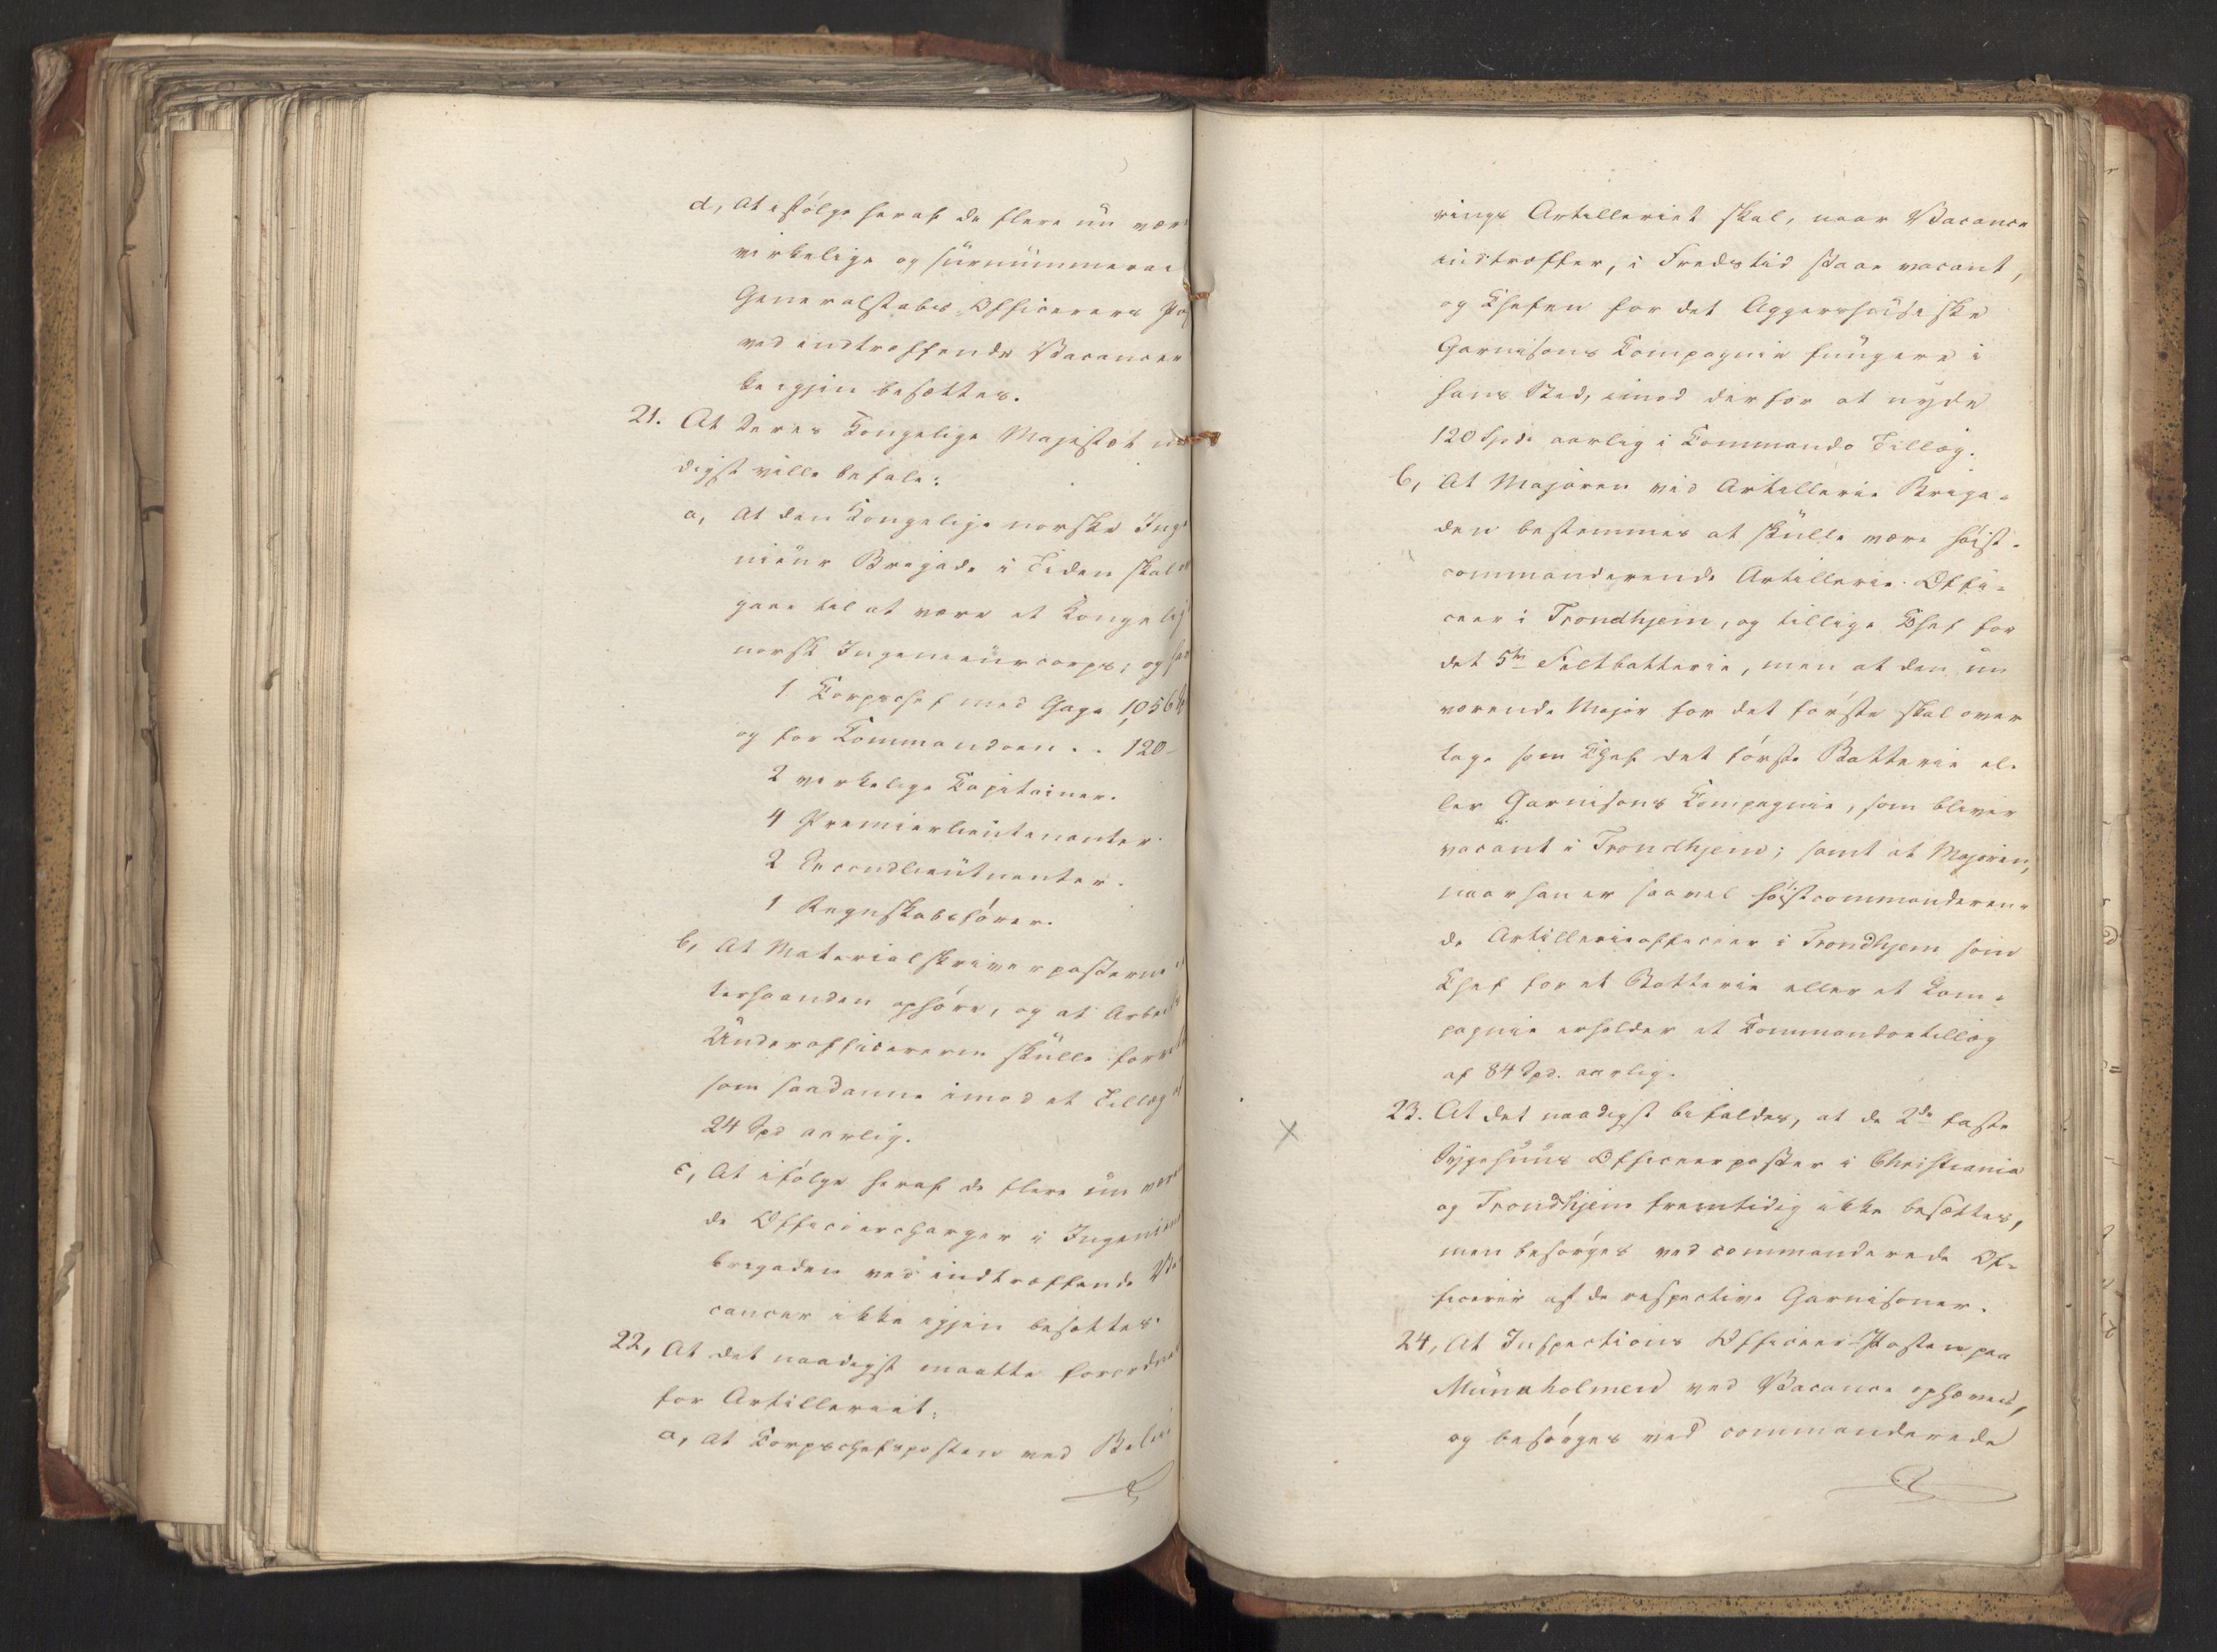 d, At ifølge heraf de flere nu være
virkelige og surnummerai
Generalstabs-Officerers Po
ved indtræffende Vacancer
ke igjen besættes.
21. At Deres Kongelige Majestæt
digst ville befale:
a, At den Kongelige norske Inge
nieur Brigade i Tiden skal
gaae til at være et Kongelig
norsk Ingenieurcorps; og
1 Korpschef med Gage 1,056
og for Kommandoen . . 120 -
2 virkelige Kapitainer.
4 Premierlieutenanter.
2 Secondlieutnanter.
1 Regnskabsfører.
b, At Materialskriverposterne
terhaanden ophøre, og at Arbei
Underofficererne skulle forret
som saadanne imod et Tillæg af
24 Spd aarlig.
c, At ifølge heraf de flere nu være
de Officierscharger i Ingenieur
brigaden ved indtræffende Va
cancer ikke igjen besættes.
22, At det naadigst maatte forordnes
for Artilleriet:
a, at Korpschefsposten ved Belei
rings Artilleriet skal, naar Vacance
indtræffer, i Fredstid staae vacant,
og Chefen for det Aggershuusiske
Garnisons Kompagnie fungere i
hans Sted, imod derfor at nyde
120 Spd. aarlig i Kommando Tillæg.
b, At Majoren ved Artillerie Briga-
den bestemmes at skulle være høist-
commanderende Artillerie-Offi-
ceer i Trondhjem, og tillige Chef for
det 5te Feltbatterie, men at den nu
værende Major for det første skal over
tage som Chef det første Batterie el-
ler Garnisons Kompagnie, som bliver
vacant i Trondhjem; samt at Majoren,
naar han er saavel høistcommanderen-
de Artillerieofficeer i Trondhjem som
Chef for et Batterie eller et Kom-
pagnie erholder et Kommandotillæg
af 84 Spd. aarlig.
23. At det naadigst befaldes, at de 2de faste
Sygehuus Officeerposter i Christiania
og Trondhjem fremtidig ikke besættes,
men besørges ved commanderede Of-
ficerer af de respective Garnisoner.
24, At Inspections Officeer-Posten paa
Munkholmen ved Vacance ophæves,
og besørges ved commanderede